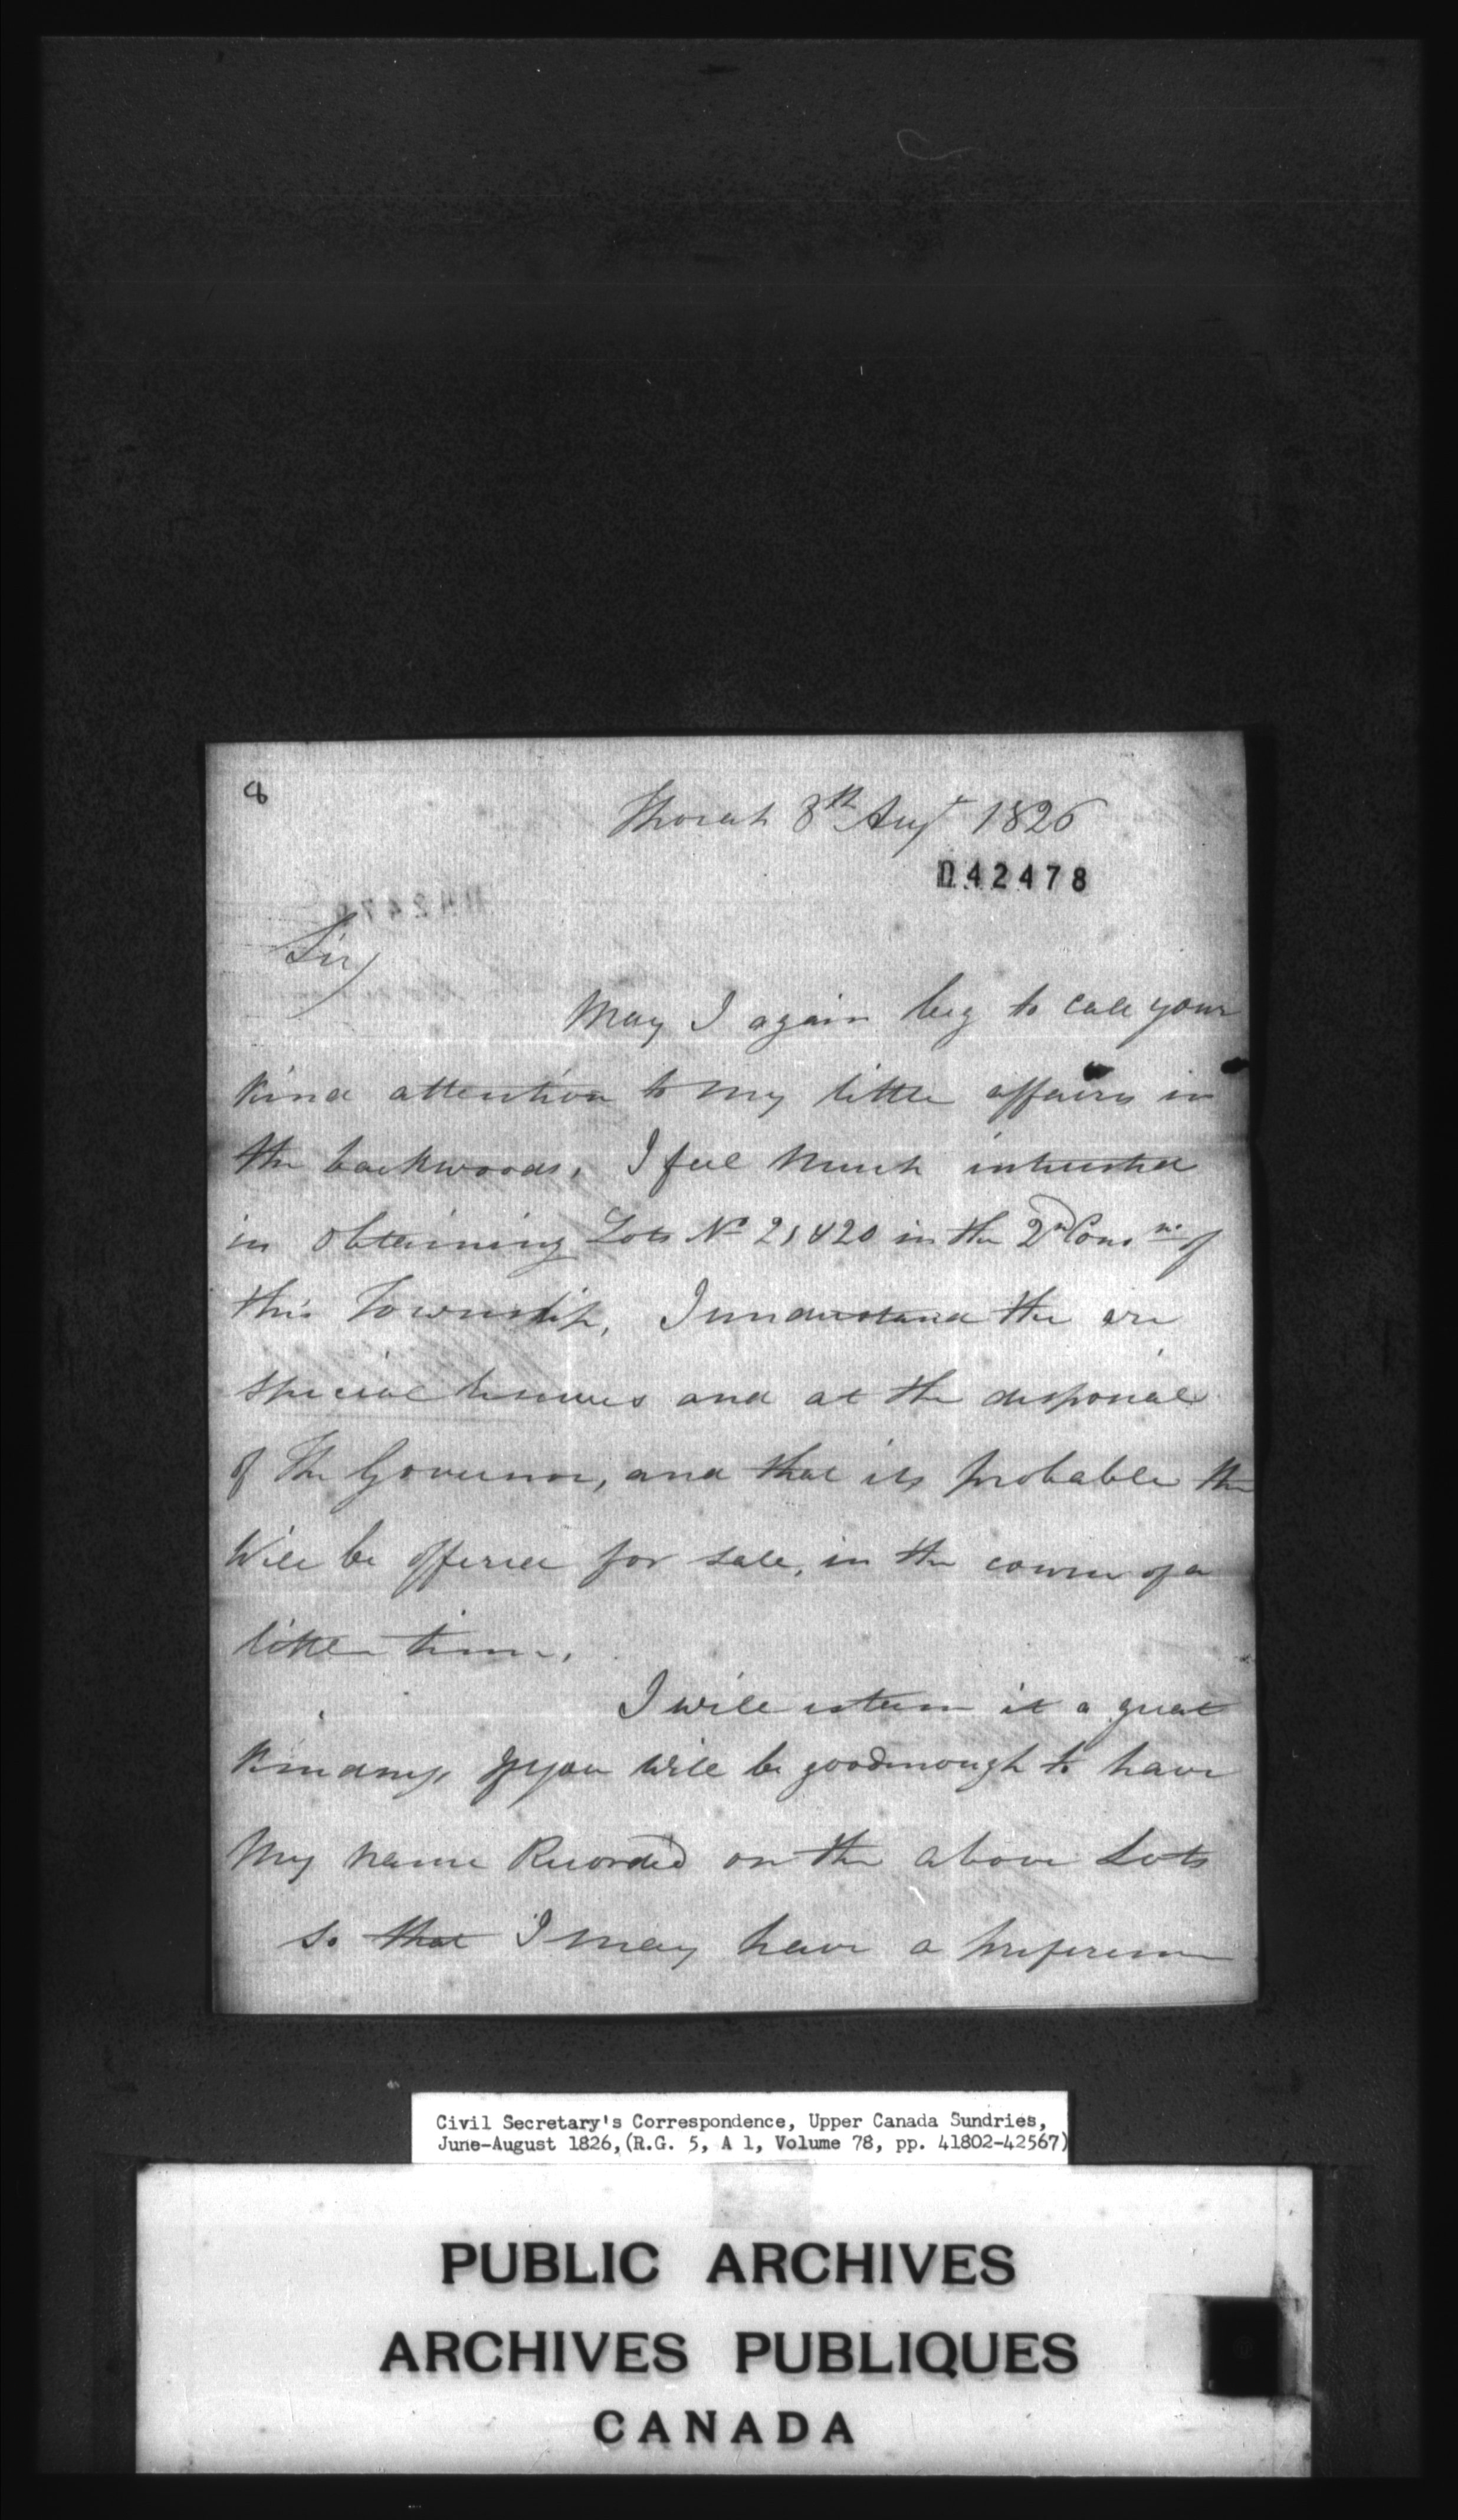 8
Thorah 8th Augt 1826
042478
Sir)
May I again beg to call your
kind attention to my little affairs in
the backwoods, I feel much interested
in obtaining Lots No 21 & 20 in the 2nd Conn of
this Township, I understand the are
special reserves and at the disposial
of The Governor, and that its probable the
Will be offered for sale, in the course of a
little time,
I will esteem it a great
kindness If you will be good enough to have
My name Recorded on the above Lots
So that I may have a preference
Civil Secretary's Correspondence, Upper Canada Sundries,
June-August 1826, (R.G. 5, A 1, Volume 78, pp. 41802-42567)
PUBLIC ARCHIVES
ARCHIVES PUBLIQUES
CANADA